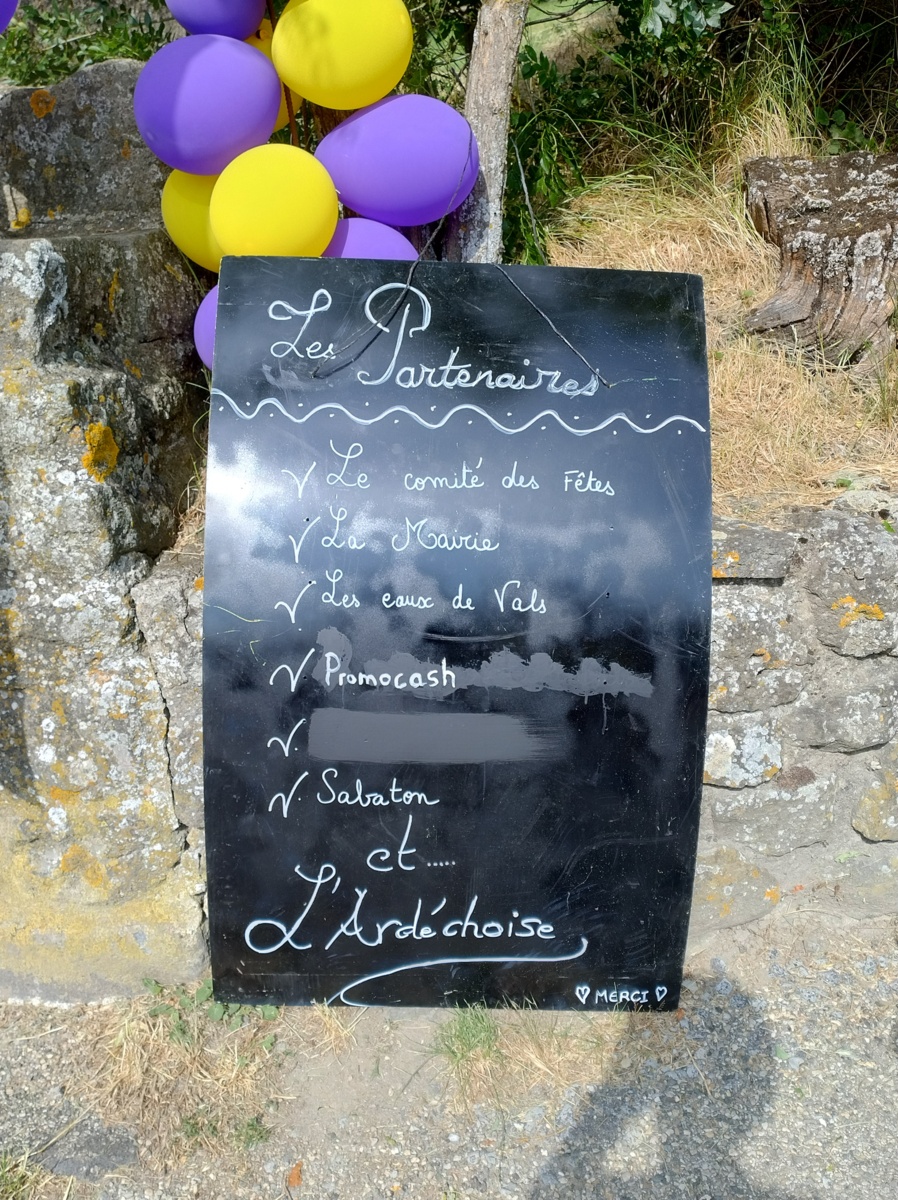 Les Partenaires
√ Le comité des Fêtes
√ La Mairie
√ Les eaux de Vals
√ Promocash
√
√ Sabaton
et.....
L'Ardéchoise
♡ MERCI ♡